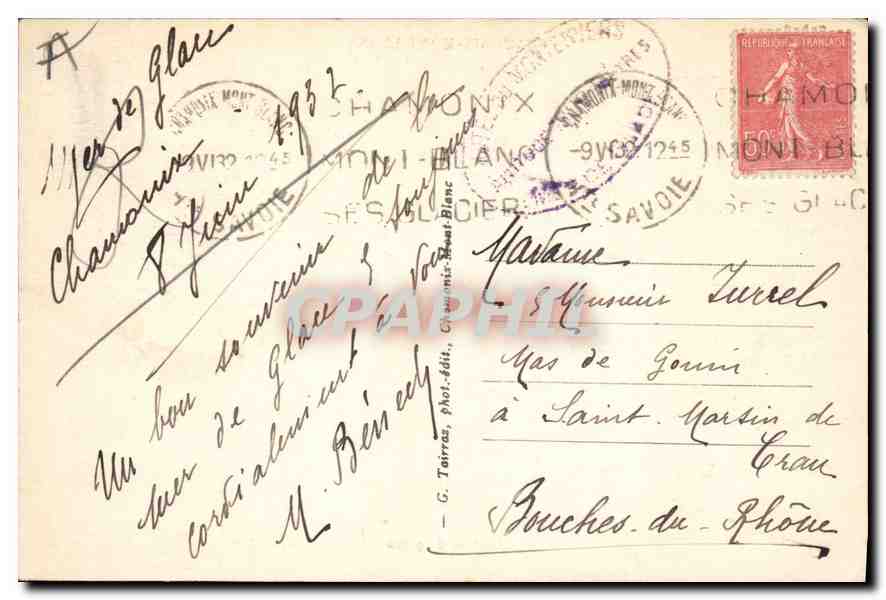 Mer de Glace
Chamonix
8 Juin 1932
Un bon souvenir de la
Mer de Glace & toujours
cordialement à vous
M.
CHAMONIX MONT-BLANC
9 VI 32 12 45
HTE SAVOIE
CHAMONIX
MONT-BLANC
SES GLACIERS
CHAMONIX MONT-BLANC
-9 VI 32 12 45
HTE SAVOIE
CHAMO
MONT-BL
SES GLAC
REPUBLIQUE FRANÇAISE
50c
G. Tairraz, phot.-édit., Chamonix-Mont-Blanc
Madame
& Monsieur Turrel
Mas de Gouin
à Saint-Martin de
Crau
Bouches-du-Rhône
CPAPHIL